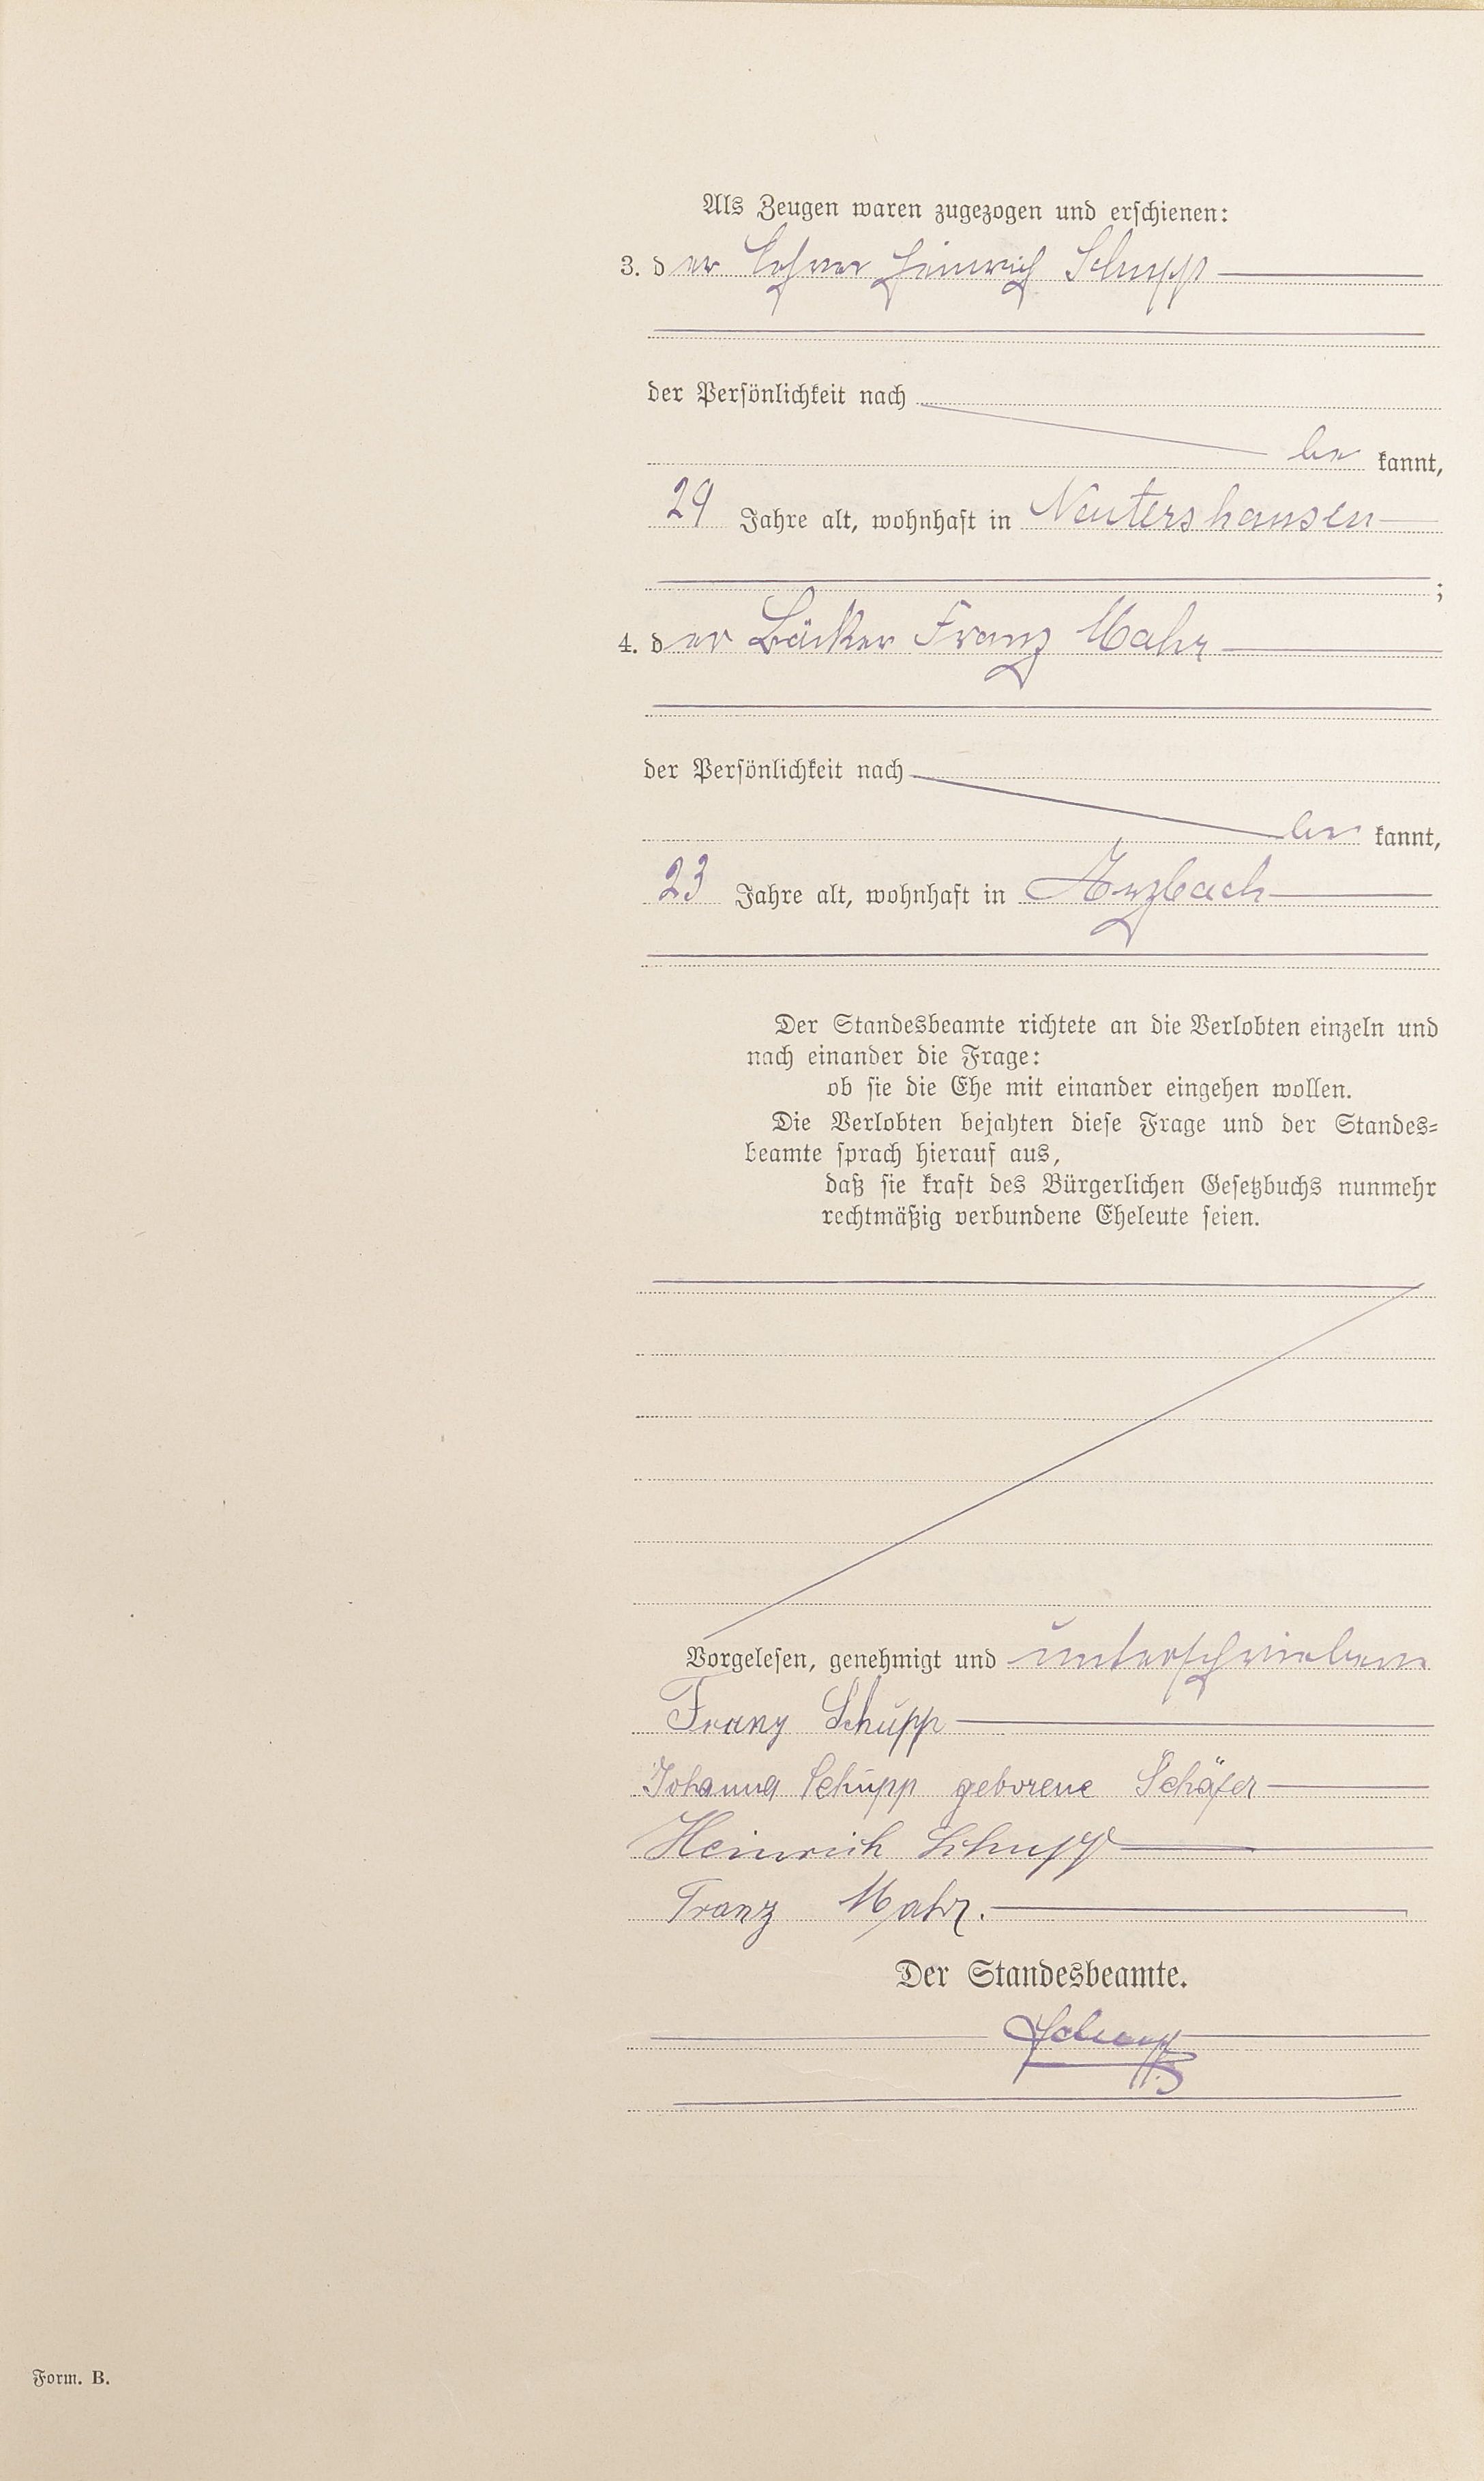 Als Zeugen waren zugezogen und erschienen:
3. der Lehrer Heinrich Schupp
der Persönlichkeit nach
be kannt,
29 Jahre alt, wohnhaft in Neutershausen
;
4. der Bäcker Franz Mahr
der Persönlichkeit nach
be kannt,
23 Jahre alt, wohnhaft in Arzbach
Der Standesbeamte richtete an die Verlobten einzeln und
nach einander die Frage:
ob sie die Ehe mit einander eingehen wollen.
Die Verlobten bejahten diese Frage und der Standes=
beamte sprach hierauf aus,
daß sie kraft des Bürgerlichen Gesetzbuchs nunmehr
rechtmäßig verbundene Eheleute seien.
Vorgelesen, genehmigt und unterschrieben
Franz Schupp
Johanna Schupp geborene Schäfer
Heinrich Schupp
Franz Mahr.
Der Standesbeamte.
Form. B.